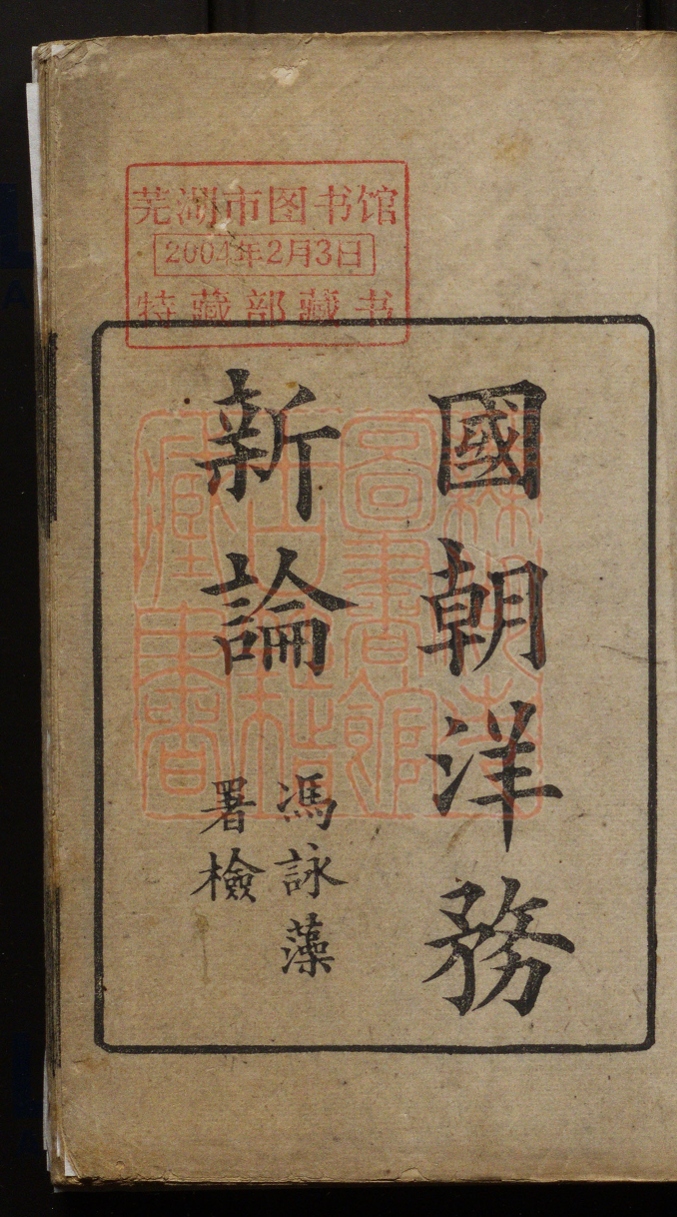 芜湖市图书馆
2004年2月3日
特藏部藏书
國朝洋務
新論
馮詠藻
署檢